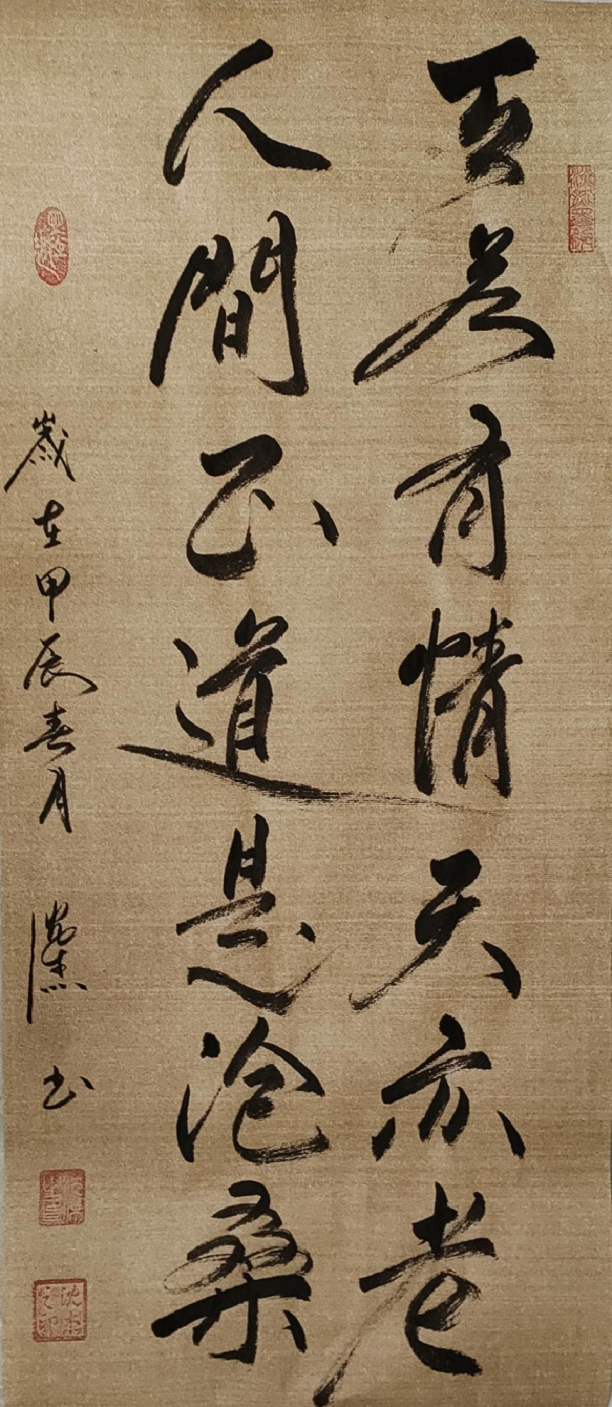 天若有情天亦老
人間正道是滄桑
歲在甲辰春月 書